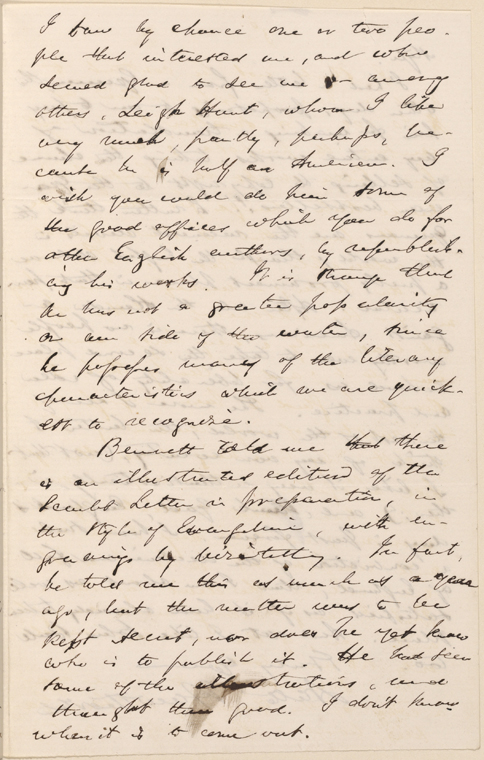 I saw by chance one or two peo-
ple that interested me, and who
seemed glad to see me — among
others, Leigh Hunt, whom I like
very much, partly, perhaps, be-
cause he is half an American. I
wish you could do him some of
the good offices which you do for
other English authors, by republish-
ing his works. It is strange that
he has not a greater popularity
on our side of the water, since
he possesses many of the literary
characteristics which we are quick-
est to recognize.
Bennett told me that there
is an illustrated edition of the
Scarlet Letter in preparation, in
the style of Evangeline, with en-
gravings by
. In fact,
he told me this as much as a year
ago, but the matter was to be
kept secret, nor does he yet know
who is to publish it. He had seen
some of the illustrations, and
thought them good. I don't know
when it is to come out.